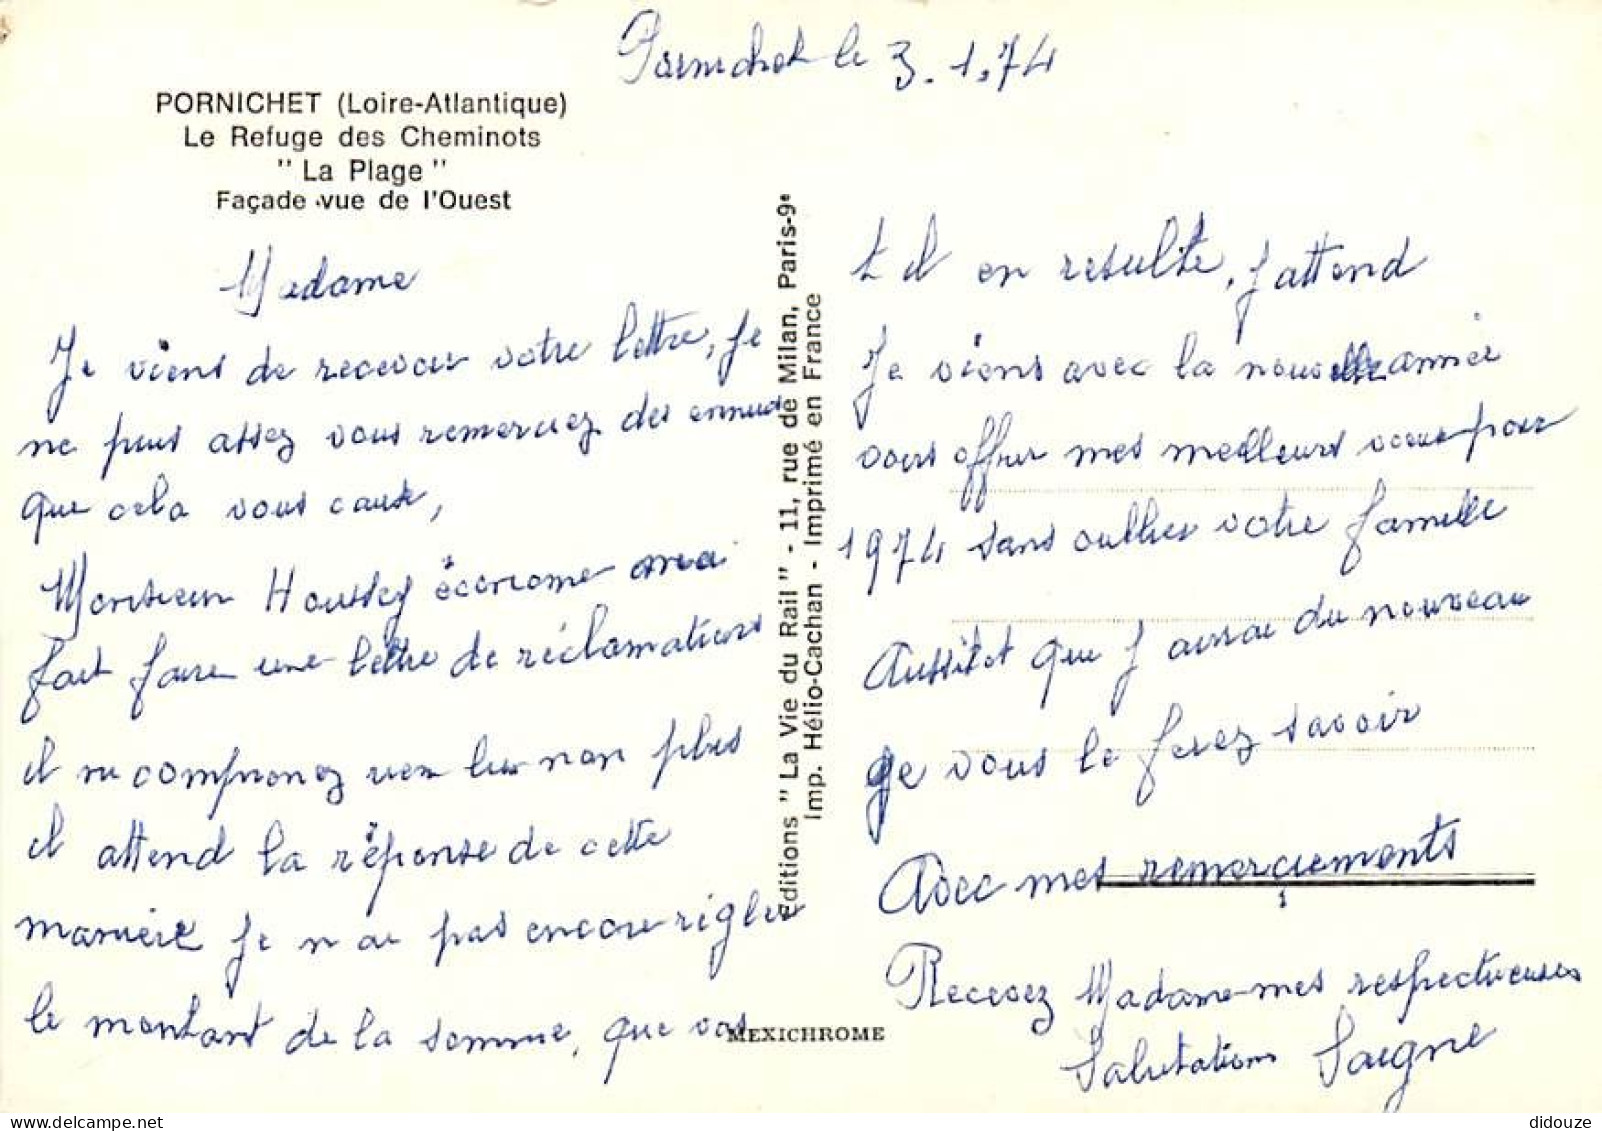 Pornichet le 3.1.74
PORNICHET (Loire-Atlantique)
Le Refuge des Cheminots
" La Plage "
Façade vue de l'Ouest
Madame
Je viens de recevoir votre lettre, je
ne peus assez vous remerciez des ennuis
que cela vous cause,
Monsieur Houssey économe ma
fait faire une lettre de réclamations
il ne comprenez rien lui non plus
il attend la réponse de cette
manière je n ai pas encore régler
le montant de la somme, que vas
Editions " La Vie du Rail " - 11, rue de Milan, Paris-9e
Imp. Hélio-Cachan - Imprimé en France
MEXICHROME
t il en resulte, j attend
Je viens avec la nouvelle année
vous offrir mes meilleurs voeux pour
1974 sans oublier votre famille
Aussitot que j aurai du nouveau
je vous le ferez savoir
Avec mes remerciements
Recevez Madame mes respectueuses
Salutations Saigne